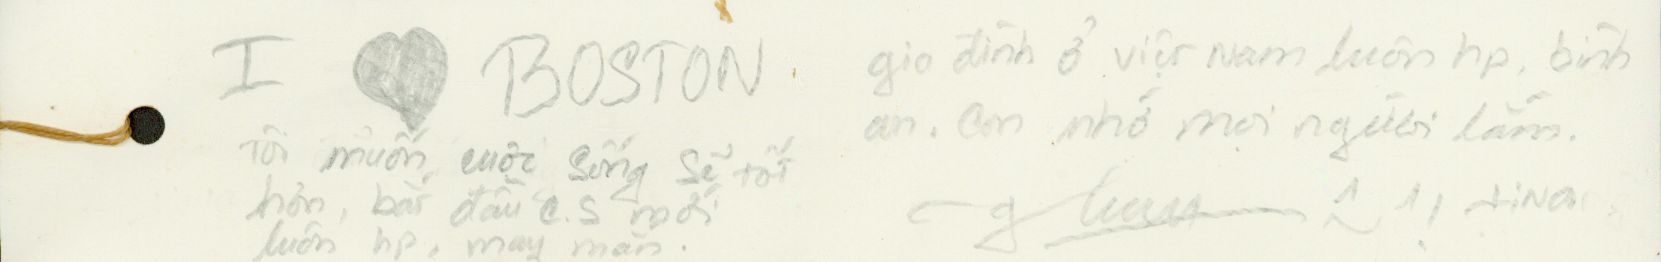 I ♥ BOSTON
Tôi muốn cuộc sống sẽ tốt
hơn, bắt đầu c.s mới
luôn hp, may mắn.
gia đình ở việt Nam luôn hp, bình
an. Con nhớ mọi người lắm.
tiNa